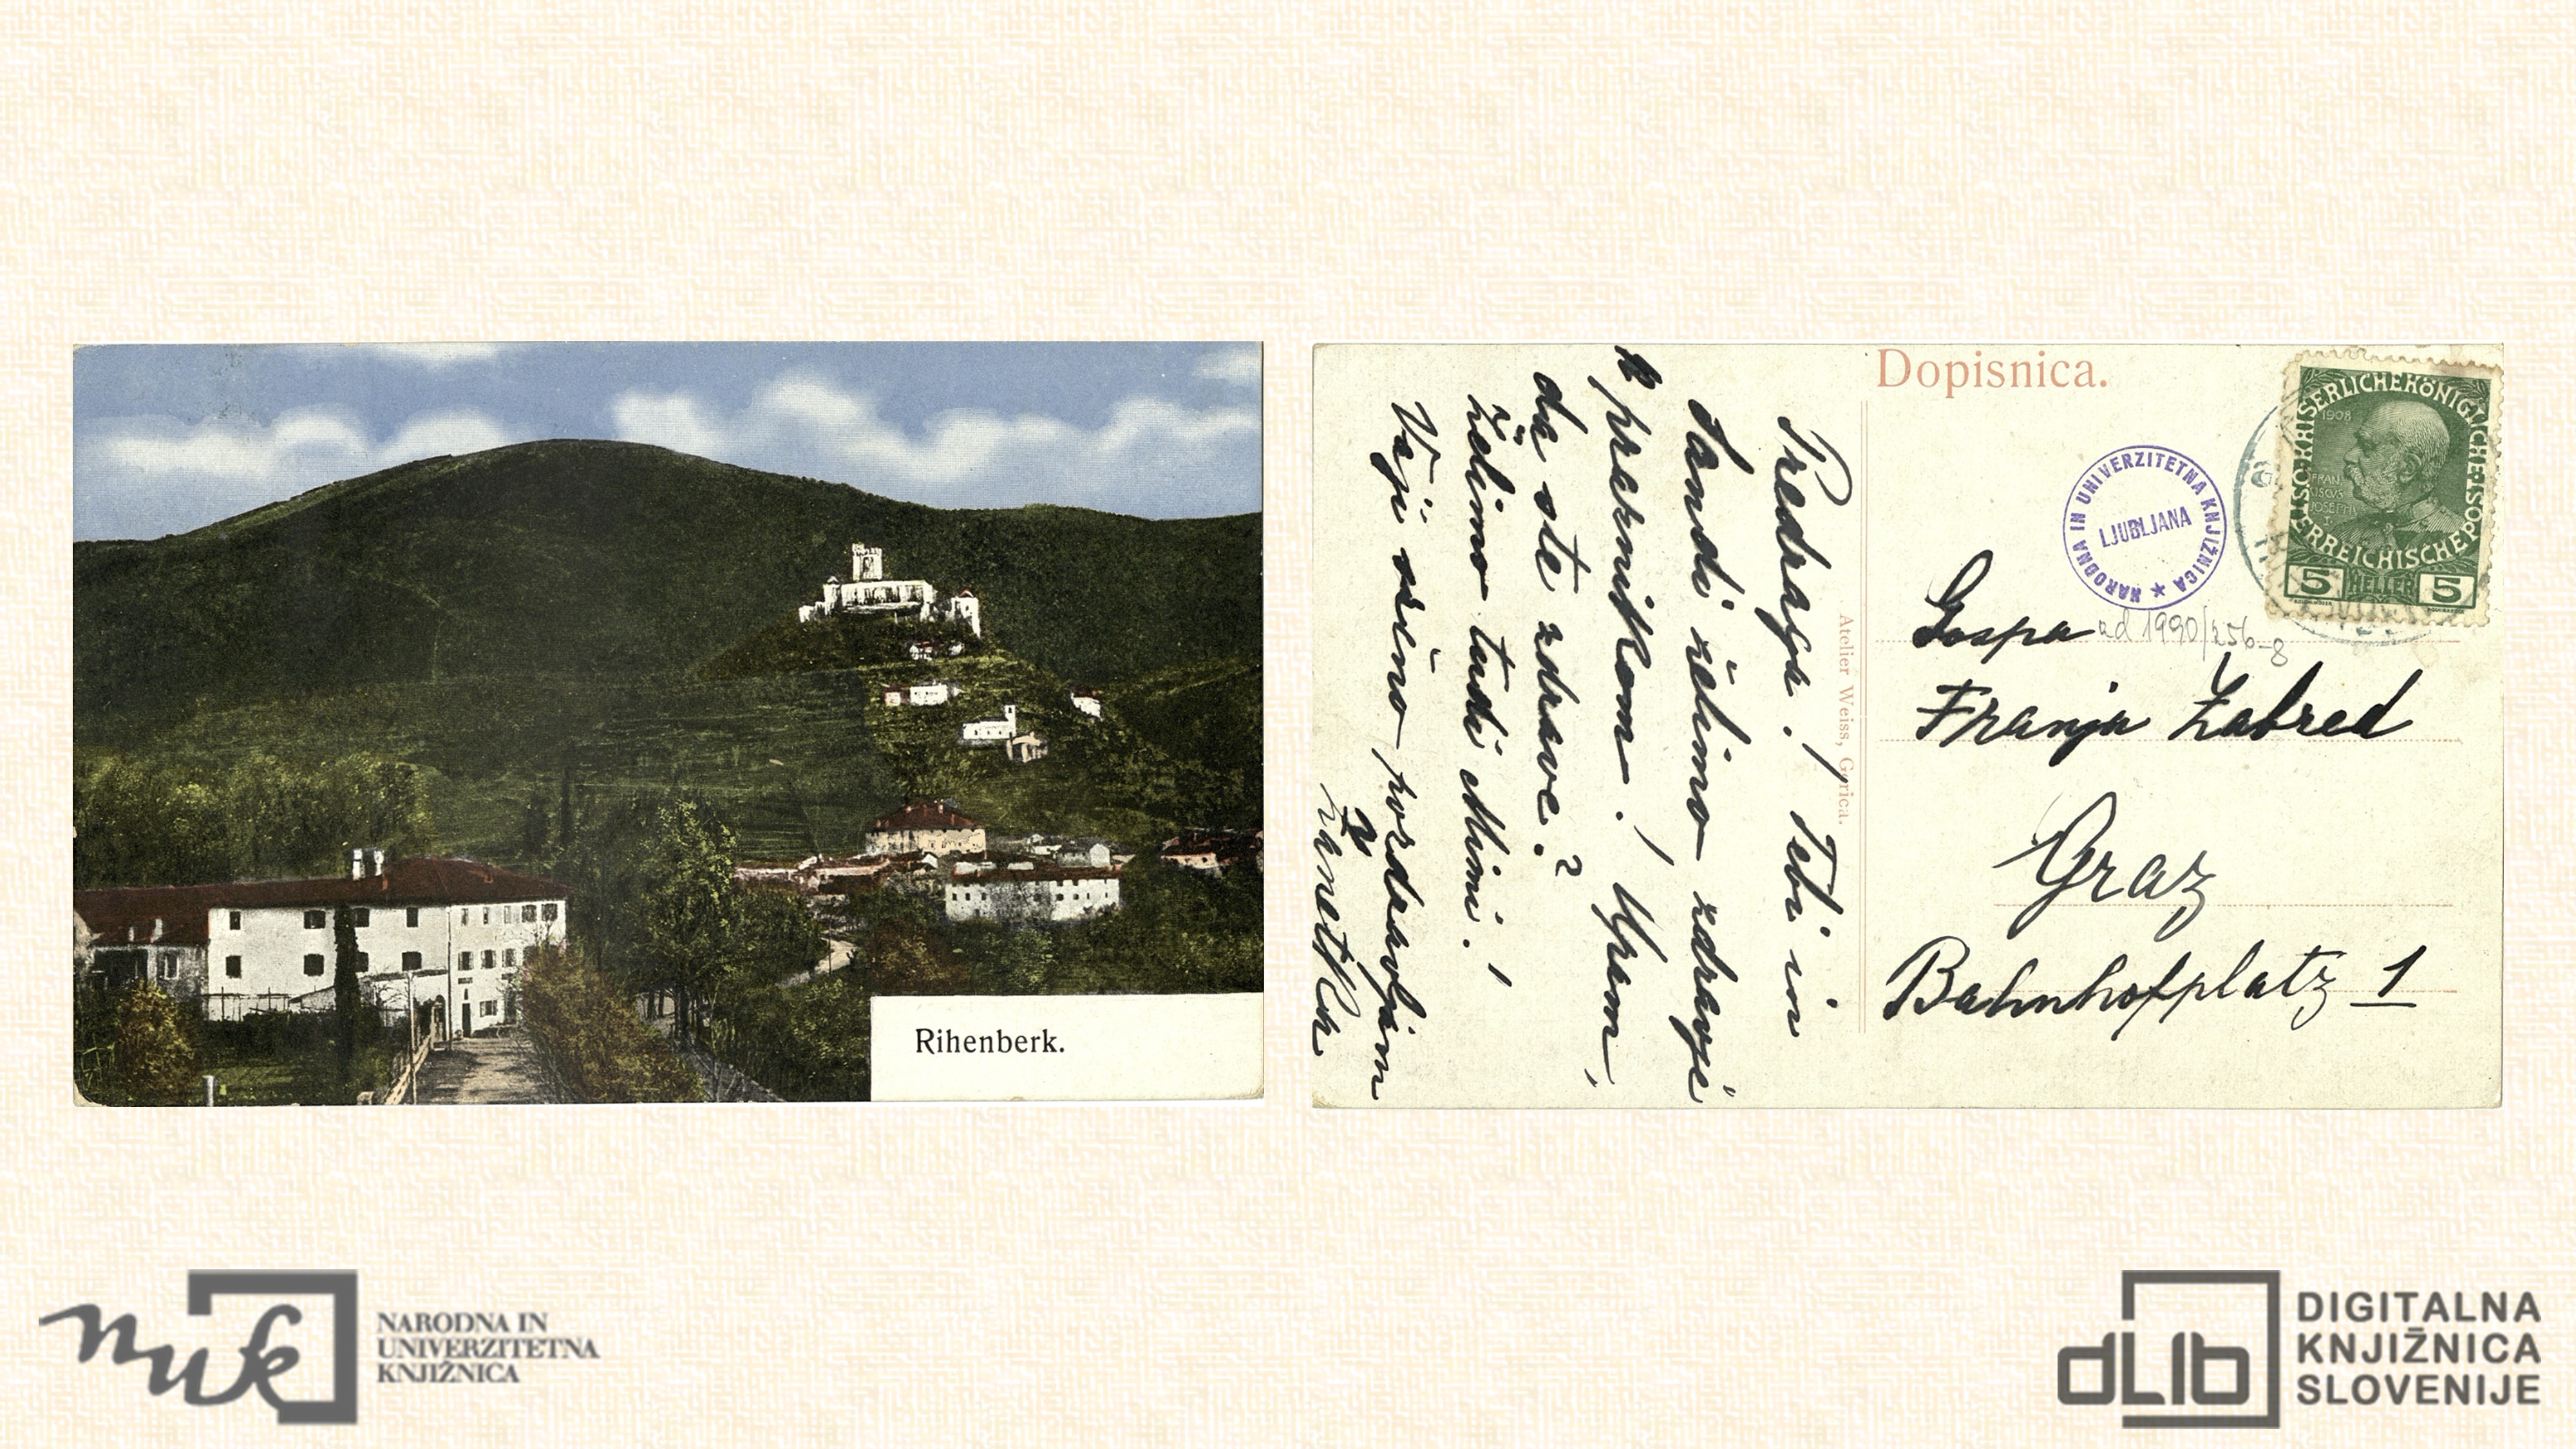 Rihenberk.
Dopisnica.
KAISERLICHE KÖNIGLICHE ÖSTERREICHISCHE POST
1908
FRANCISCUS JOSEPH I
5 HELLER 5
NARODNA IN UNIVERZITETNA KNJIŽNICA ★
LJUBLJANA
ad 1990/256-8
Gospa
Franja Zabred
Graz
Bahnhofplatz 1
Atelier Weiss, Gorica.
Predraga! Tebi in
Sandi želimo zdravje
k praznikom! Upam,
da ste zdrave?
Želimo tudi Mimi!
Vaji srčno pozdravljam
Žanetka
nuk
NARODNA IN
UNIVERZITETNA
KNJIŽNICA
dLib
DIGITALNA
KNJIŽNICA
SLOVENIJE